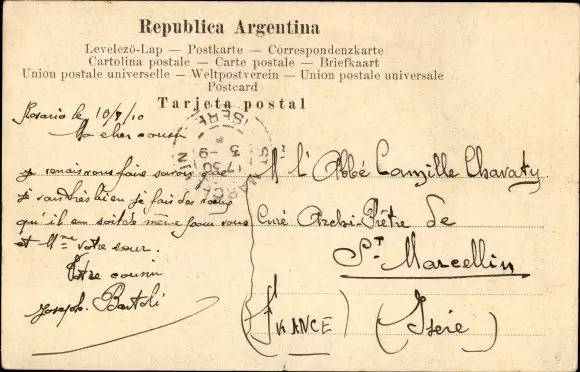 Republica Argentina
Levelezö-Lap — Postkarte — Correspondenzkarte
Cartolina postale — Carte postale — Briefkaart
Union postale universelle — Weltpostverein — Union postale universale
Postcard
Tarjeta postal
Rosario le 10/7/10
Mo cher cousin
je venais vous faire savoir que
je vais très bien je fais des vœux
qu'il en soit de même pour vous
et Mme votre sœur.
Votre cousin
Joseph Bartoli
ST MARCELLIN
1730
3 -9
ISERE
M l'Abbé Camille Chavaty
Curé Archi-Prêtre de
St Marcellin
(FRANCE) (Isère)